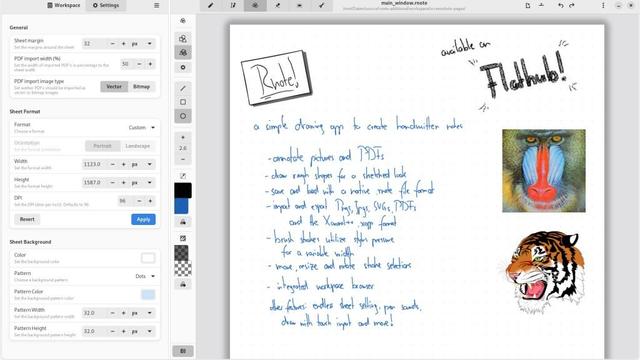 Workspace
Settings
main_window.rnote
General
Sheet margin
Set the margins around the sheet
32
px
PDF import width (%)
50
PDF import image type
Vector
Bitmap
Sheet Format
Format
Choose a format
Custom
Orientation
Portrait
Landscape
Width
Set the format width
1123.0
px
Height
Set the format height
1587.0
px
DPI
96
Revert
Apply
Sheet Background
Color
Set the background color
Pattern
Choose a background pattern
Dots
Pattern Color
Set the background pattern color
Pattern Width
Set the background pattern width
32.0
px
Pattern Height
32.0
px
2.6
Rnote!
available on
Flathub!
a simple drawing app to create handwritten notes
- annotate pictures and PDFs
- draw rough shapes for a sketched look
- save and load with a native .rnote file format
- import and export Pngs, Jpgs, SVGs, PDFs
and the Xournal++ .xopp format
- brush strokes utilize stylus pressure
for a variable width
- move, resize and rotate stroke selections
- integrated workspace browser
other features: endless sheet setting, pen sounds,
draw with touch input and more!